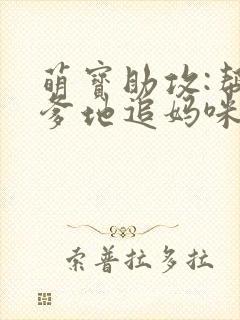 萌宝助攻:帮
爹地追妈咪
索普拉多拉